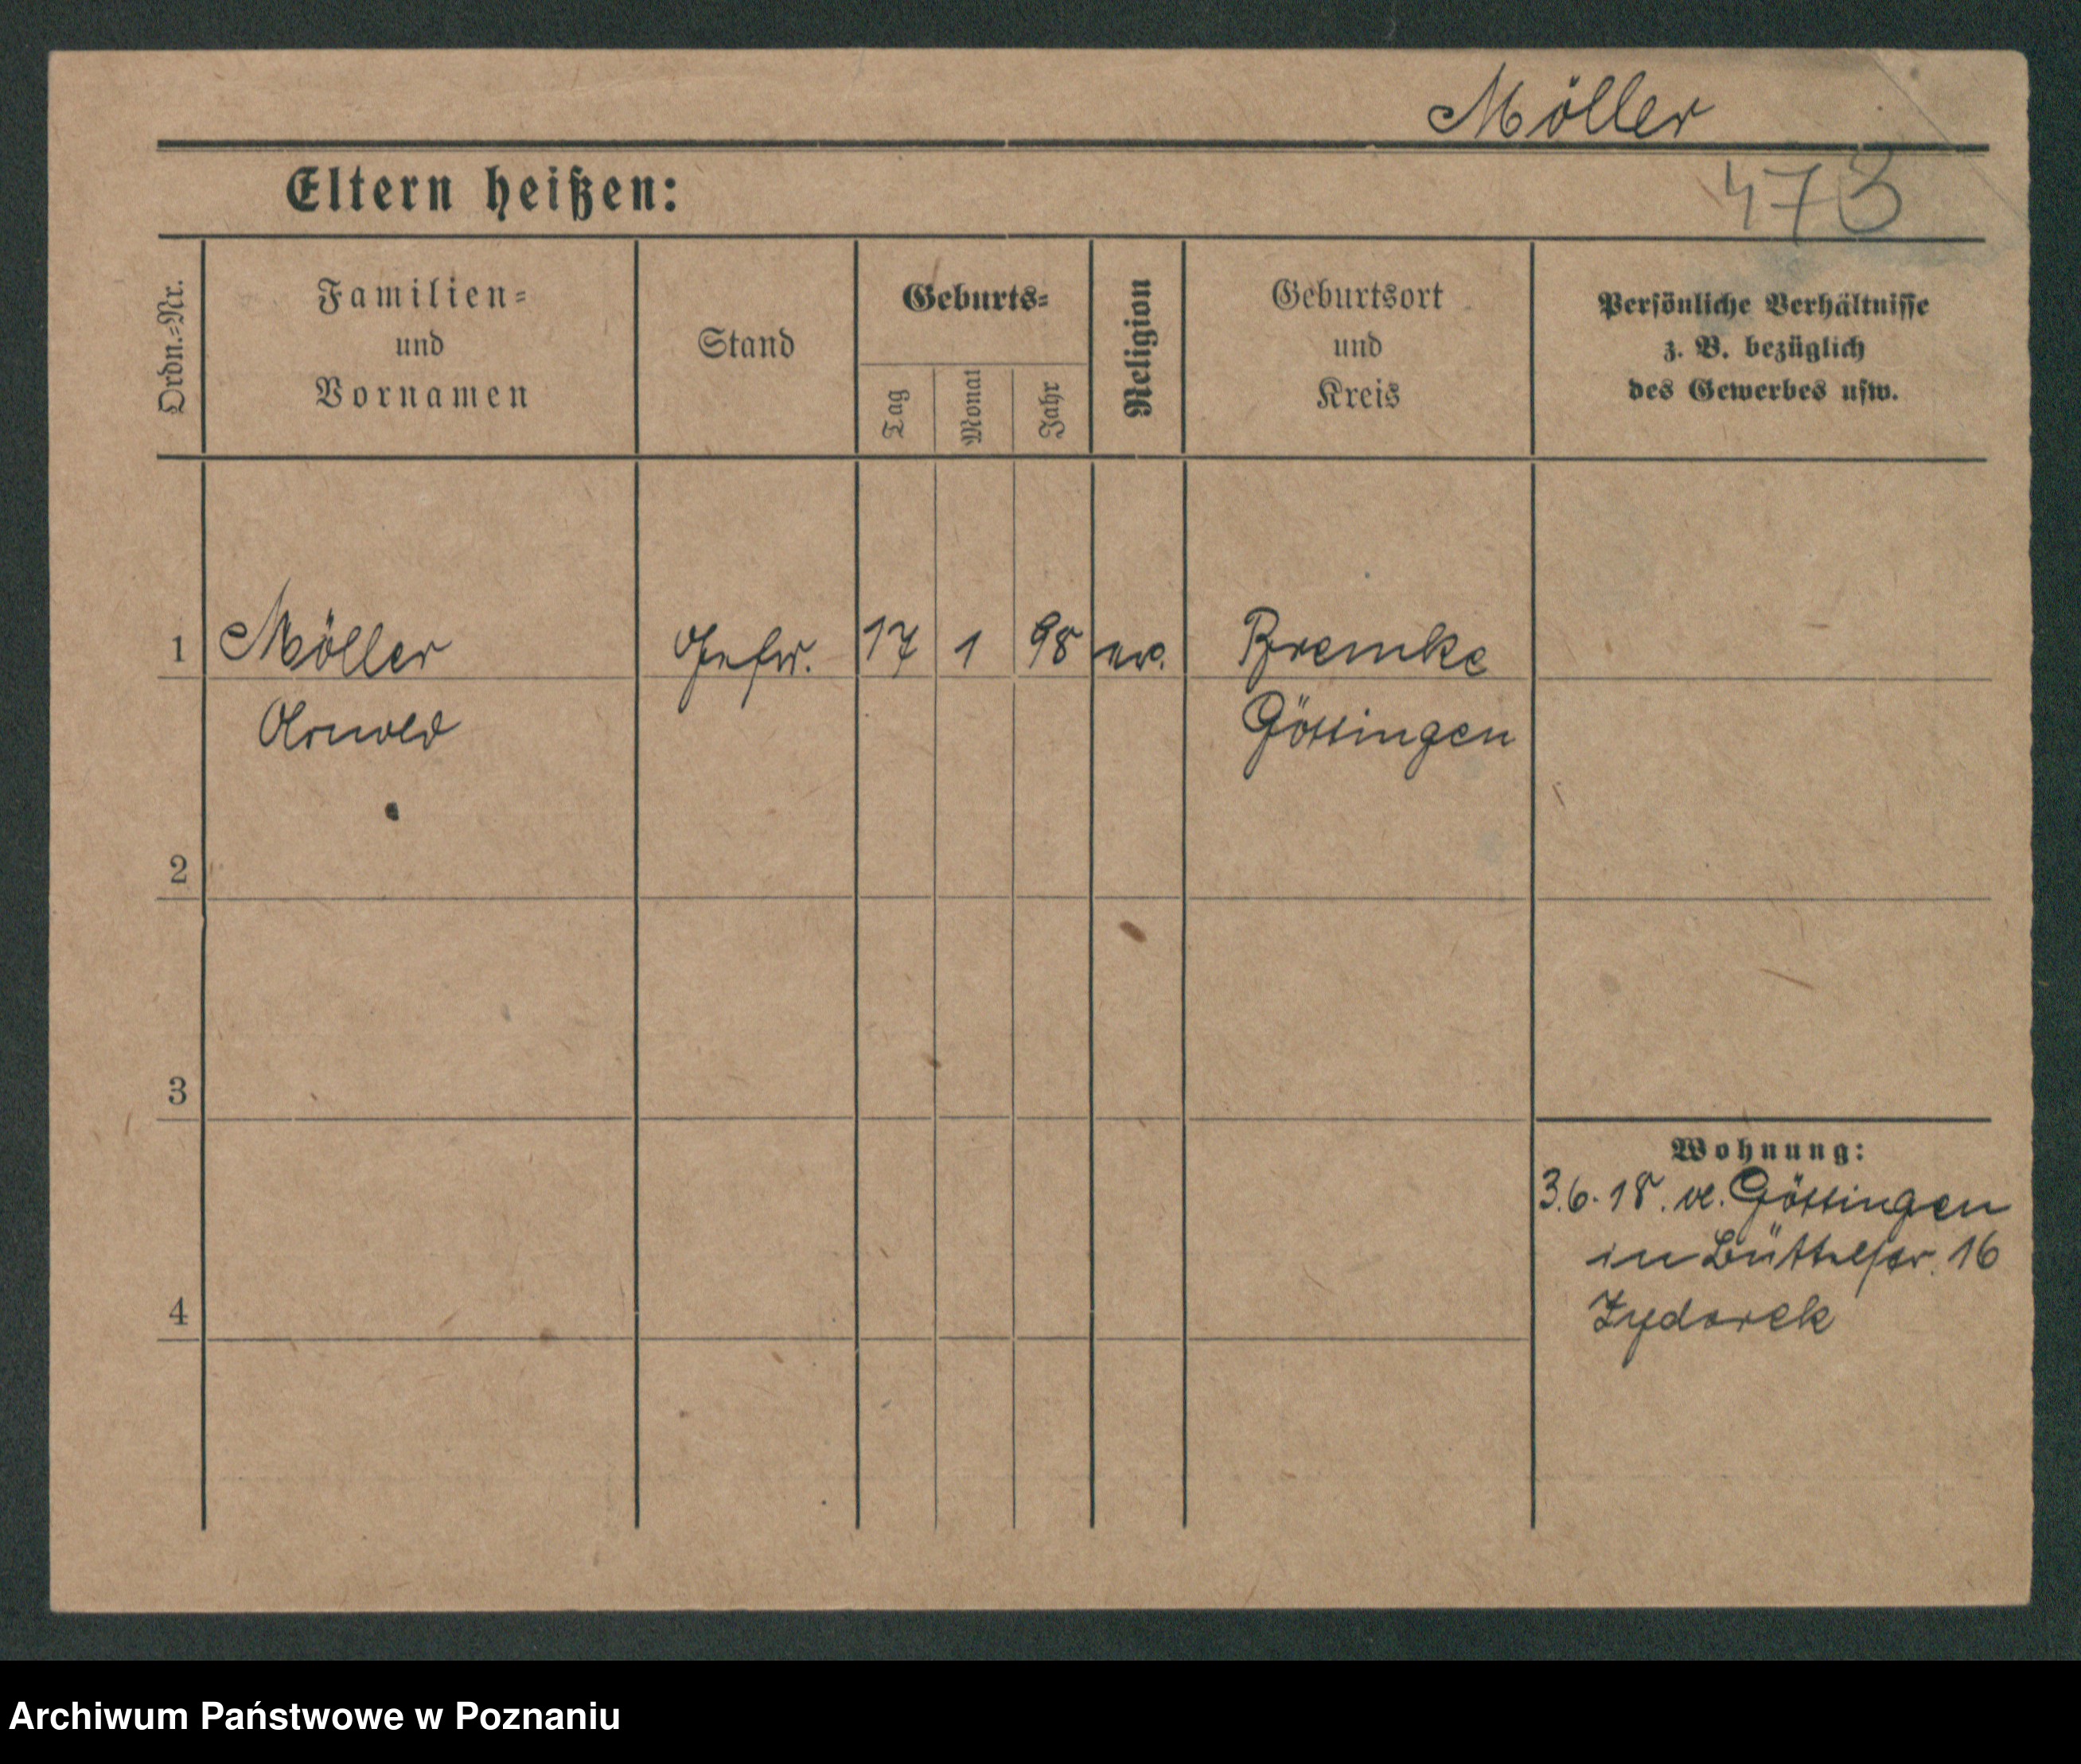 Möller
473
Eltern heißen:
Ordn.-Nr.
Familien-
und
Vornamen
Stand
Geburts-
Tag
Monat
Jahr
Religion
Geburtsort
und
Kreis
Persönliche Verhältnisse
z. B. bezüglich
des Gewerbes usw.
1 Möller Gefr. 17 1 98 ev. Bremke
Arnold Göttingen
2
3
Wohnung:
3.6.18. Göttingen
in Büttelstr. 16
4
Zydorek
Archiwum Państwowe w Poznaniu